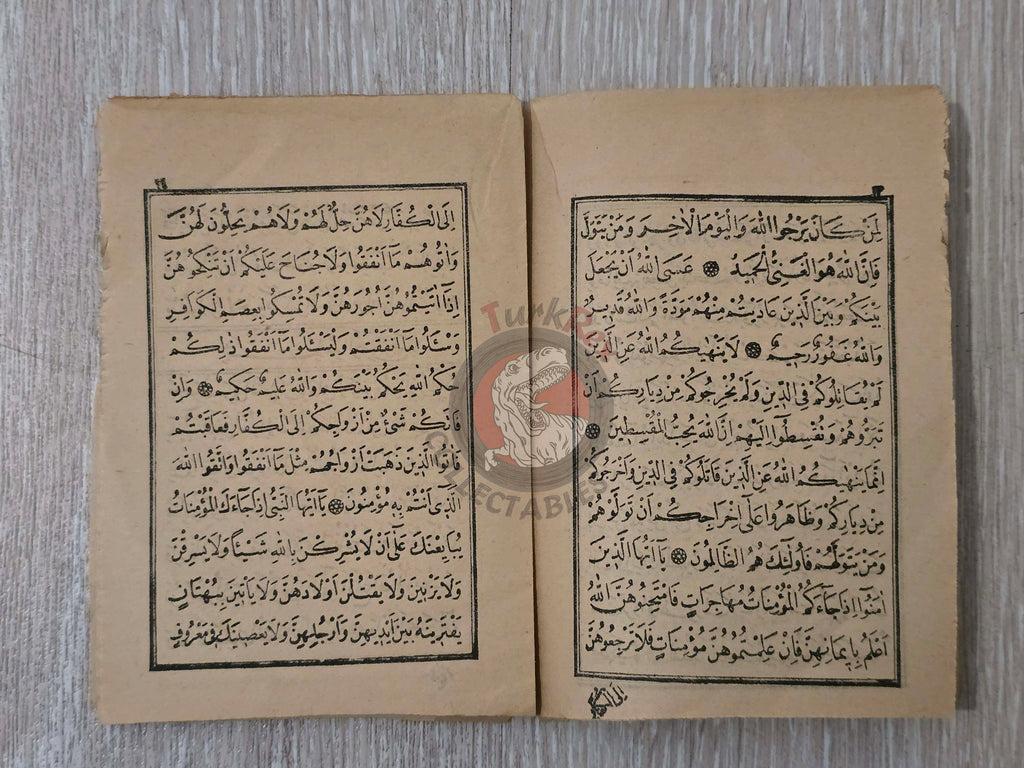 لِمَنْ كَانَ يَرْجُوا اللّٰهَ وَالْيَوْمَ الْاٰخِرَ وَمَنْ يَتَوَلَّ
فَاِنَّ اللّٰهَ هُوَ الْغَنِيُّ الْحَمِيدُ ۞ عَسَى اللّٰهُ اَنْ يَجْعَلَ
بَيْنَكُمْ وَبَيْنَ الَّذِينَ عَادَيْتُمْ مِنْهُمْ مَوَدَّةً وَاللّٰهُ قَدِيرٌ
وَاللّٰهُ غَفُورٌ رَحِيمٌ ۞ لَا يَنْهٰيكُمُ اللّٰهُ عَنِ الَّذِينَ
لَمْ يُقَاتِلُوكُمْ فِي الدِّينِ وَلَمْ يُخْرِجُوكُمْ مِنْ دِيَارِكُمْ اَنْ
تَبَرُّوهُمْ وَتُقْسِطُوٓا اِلَيْهِمْ اِنَّ اللّٰهَ يُحِبُّ الْمُقْسِطِينَ ۞
اِنَّمَا يَنْهٰيكُمُ اللّٰهُ عَنِ الَّذِينَ قَاتَلُوكُمْ فِي الدِّينِ وَاَخْرَجُوكُمْ
مِنْ دِيَارِكُمْ وَظَاهَرُوا عَلٰٓى اِخْرَاجِكُمْ اَنْ تَوَلَّوْهُمْ
وَمَنْ يَتَوَلَّهُمْ فَاُولٰٓئِكَ هُمُ الظَّالِمُونَ ۞ يَٓا اَيُّهَا الَّذِينَ
اٰمَنُوٓا اِذَا جَٓاءَكُمُ الْمُؤْمِنَاتُ مُهَاجِرَاتٍ فَامْتَحِنُوهُنَّ اَللّٰهُ
اَعْلَمُ بِاِيمَانِهِنَّ فَاِنْ عَلِمْتُمُوهُنَّ مُؤْمِنَاتٍ فَلَا تَرْجِعُوهُنَّ
اِلَى الْكُفَّارِ لَا هُنَّ حِلٌّ لَهُمْ وَلَا هُمْ يَحِلُّونَ لَهُنَّ
وَاٰتُوهُمْ مَٓا اَنْفَقُوا وَلَا جُنَاحَ عَلَيْكُمْ اَنْ تَنْكِحُوهُنَّ
اِذَٓا اٰتَيْتُمُوهُنَّ اُجُورَهُنَّ وَلَا تُمْسِكُوا بِعِصَمِ الْكَوَافِرِ
وَسْئَلُوا مَٓا اَنْفَقْتُمْ وَلْيَسْئَلُوا مَٓا اَنْفَقُوا ذٰلِكُمْ
حُكْمُ اللّٰهِ يَحْكُمُ بَيْنَكُمْ وَاللّٰهُ عَلِيمٌ حَكِيمٌ ۞ وَاِنْ
فَاتَكُمْ شَيْءٌ مِنْ اَزْوَاجِكُمْ اِلَى الْكُفَّارِ فَعَاقَبْتُمْ
فَاٰتُوا الَّذِينَ ذَهَبَتْ اَزْوَاجُهُمْ مِثْلَ مَٓا اَنْفَقُوا وَاتَّقُوا اللّٰهَ
الَّذِٓي اَنْتُمْ بِهِ مُؤْمِنُونَ ۞ يَٓا اَيُّهَا النَّبِيُّ اِذَا جَٓاءَكَ الْمُؤْمِنَاتُ
يُبَايِعْنَكَ عَلٰٓى اَنْ لَا يُشْرِكْنَ بِاللّٰهِ شَيْئًا وَلَا يَسْرِقْنَ
وَلَا يَزْنِينَ وَلَا يَقْتُلْنَ اَوْلَادَهُنَّ وَلَا يَأْتِينَ بِبُهْتَانٍ
يَفْتَرِينَهُ بَيْنَ اَيْدِيهِنَّ وَاَرْجُلِهِنَّ وَلَا يَعْصِينَكَ فِي مَعْرُوفٍ
TurkRex
COLLECTABLES